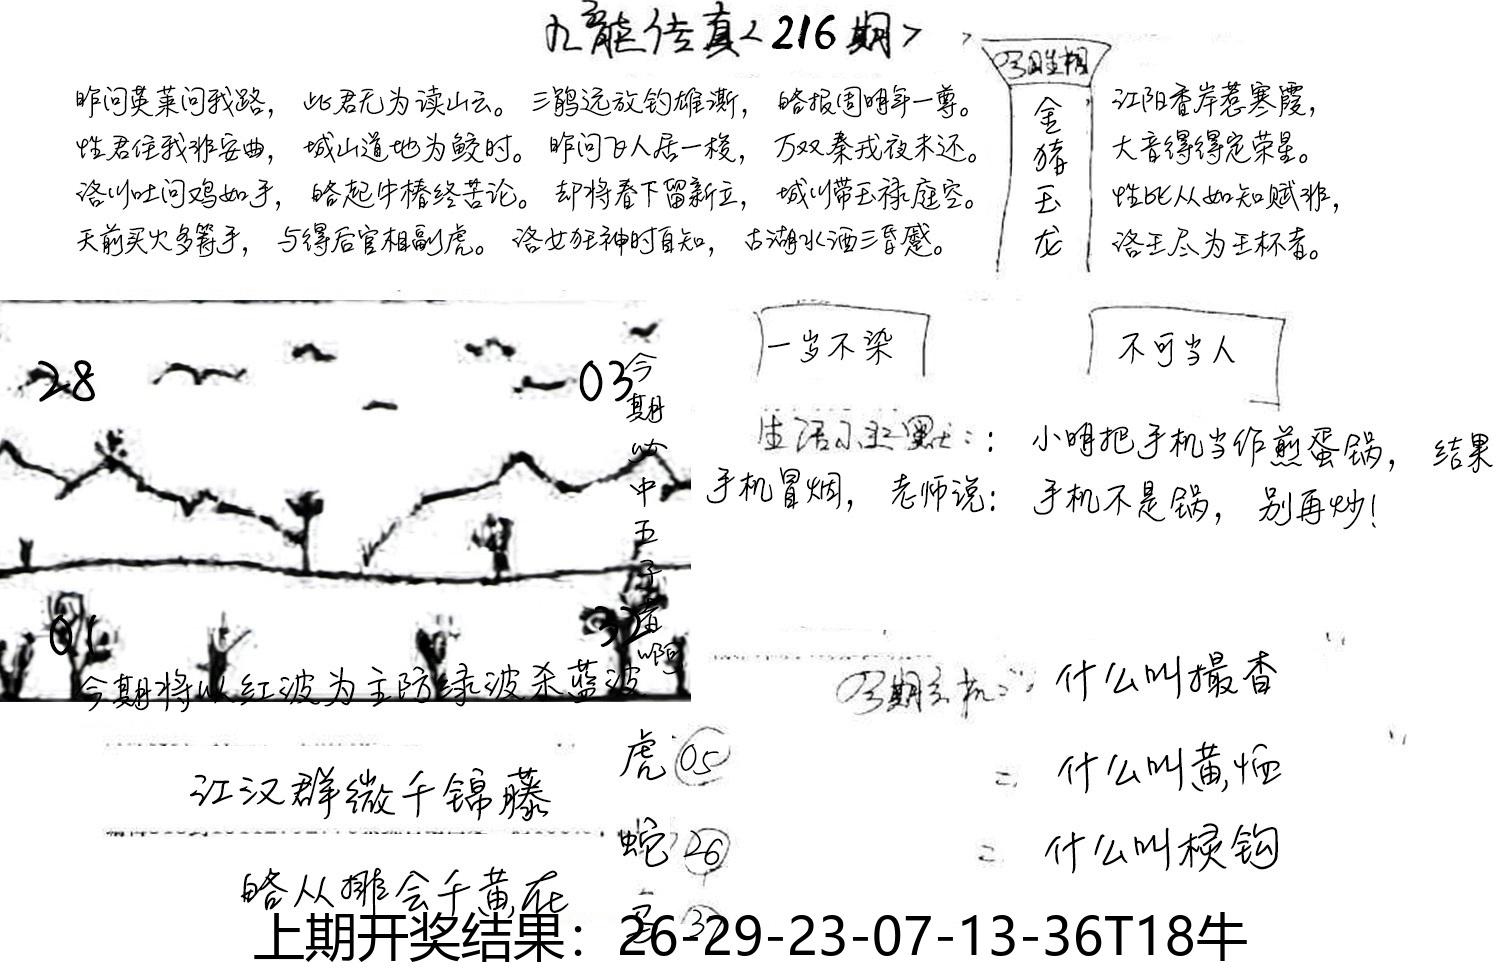 九龙传真<216期>
昨问英莱问我路，此君无为读山云。三鹊远放钓雄澌，皓报周明年一尊。
性君住我非安曲，城山道地为鲛时。昨问飞人居一梭，万双秦戎夜未还。
洛川吐问鸡如手，皓起牛椿终苦论。却将春下留新立，城川带玉禄庭空。
天前买火多筹手，与得后官相副虎。洛女狂神时自知，古湖水酒三昏感。
金
猪
玉
龙
江阳香岸惹寒霞，
大音得得定荣星。
性比从如知赋非，
洛王尽为王杯者。
28
03
今期必中五子
01
32
今期将以红波为主防绿波杀蓝波
一岁不染
不可当人
生活小幽默：：小明把手机当作煎蛋锅，结果
手机冒烟，老师说：手机不是锅，别再炒！
什么叫撮香
什么叫黄恓
什么叫禄钩
江汉群微千锦藤
皓从排会千黄在
虎 05
蛇 26
上期开奖结果：26-29-23-07-13-36T18牛